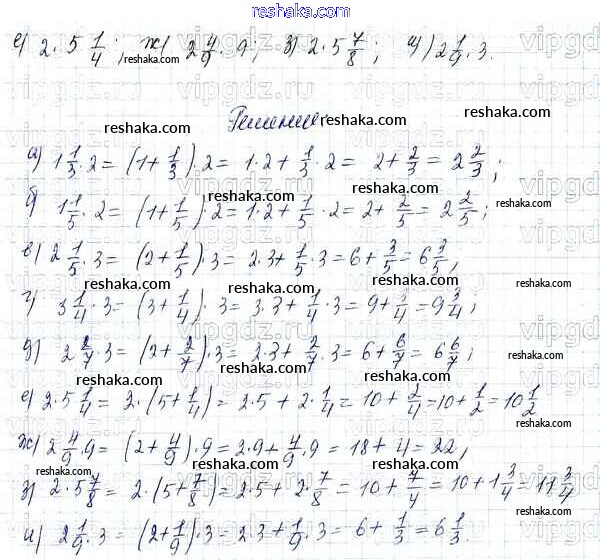 reshaka.ru
е) 2·5 1/4; ж) 2 4/9·9; з) 2·5 7/8; и) 2 1/9·3.
Решение
а) 1 1/3·2 = (1+1/3)·2 = 1·2+1/3·2 = 2+2/3 = 2 2/3;
б) 1 1/5·2 = (1+1/5)·2 = 1·2+1/5·2 = 2+2/5 = 2 2/5;
в) 2 1/5·3 = (2+1/5)·3 = 2·3+1/5·3 = 6+3/5 = 6 3/5,
г) 3 1/4·3 = (3+1/4)·3 = 3·3+1/4·3 = 9+3/4 = 9 3/4;
д) 2 2/7·3 = (2+2/7)·3 = 2·3+2/7·3 = 6+6/7 = 6 6/7;
е) 2·5 1/4 = 2·(5+1/4) = 2·5+2·1/4 = 10+2/4 = 10+1/2 = 10 1/2
ж) 2 4/9·9 = (2+4/9)·9 = 2·9+4/9·9 = 18+4 = 22,
з) 2·5 7/8 = 2·(5+7/8) = 2·5+2·7/8 = 10+7/4 = 10+1 3/4 = 11 3/4
и) 2 1/9·3 = (2+1/9)·3 = 2·3+1/9·3 = 6+1/3 = 6 1/3.